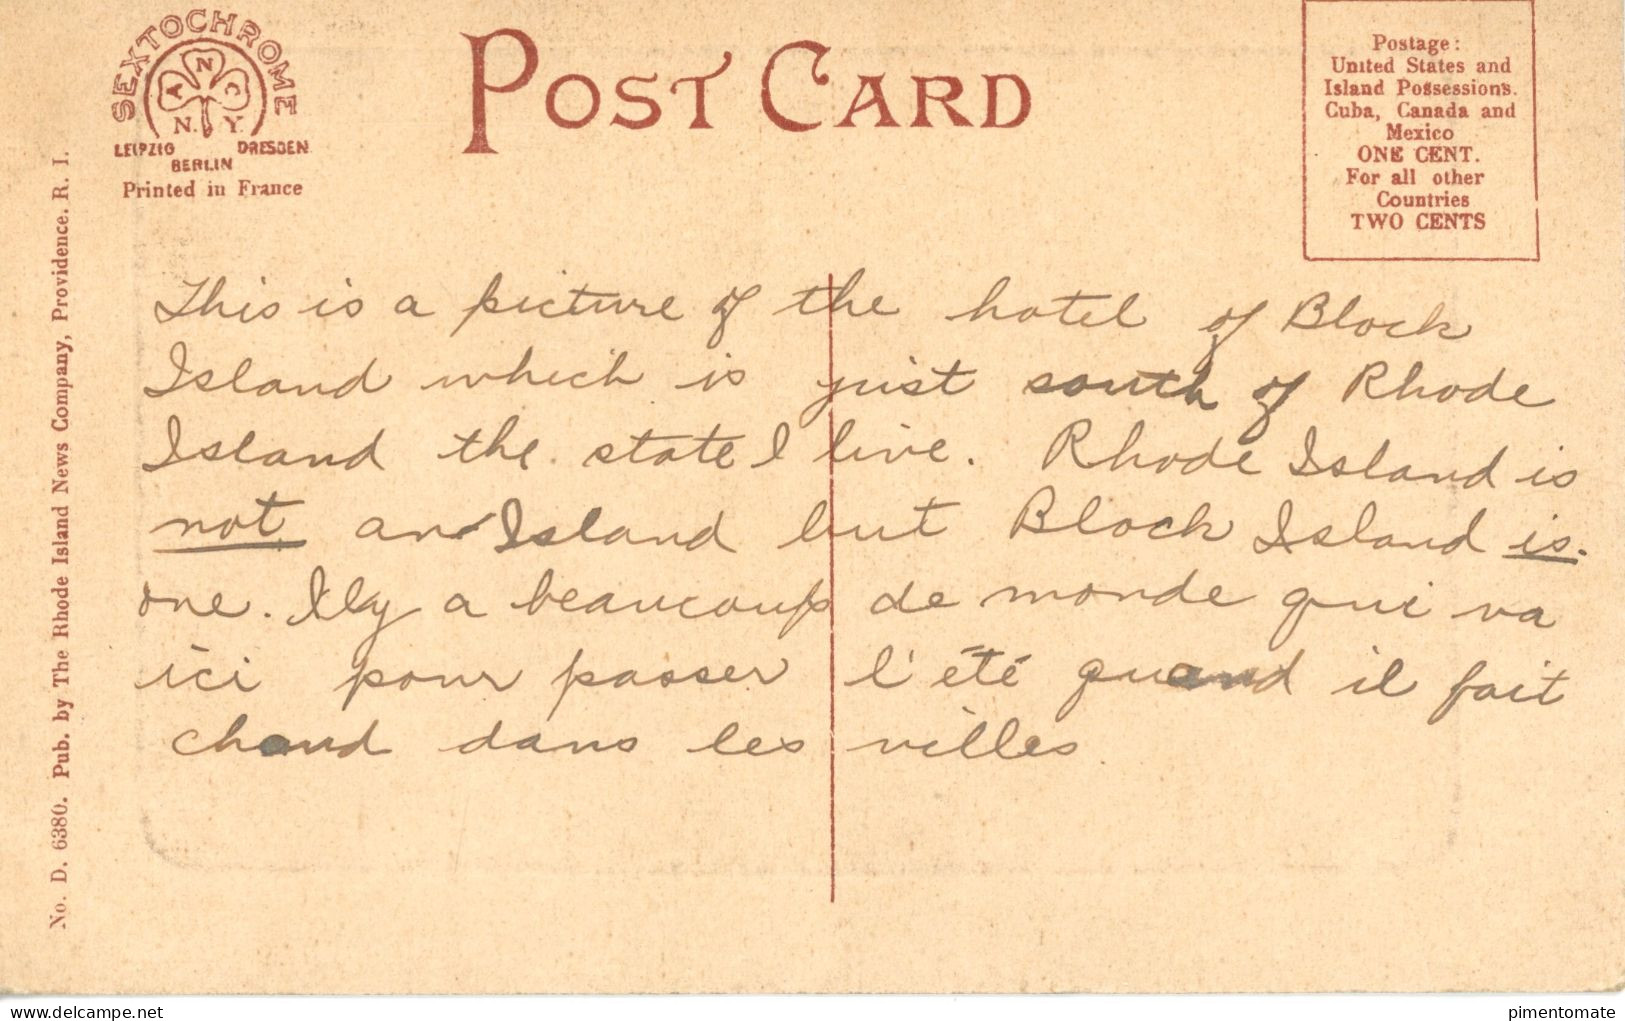 SEXTOCHROME
A N C
N. Y.
LEIPZIG DRESDEN
BERLIN
Printed in France
POST CARD
Postage:
United States and
Island Possessions.
Cuba, Canada and
Mexico
ONE CENT.
For all other
Countries
TWO CENTS
No. D. 6380. Pub. by The Rhode Island News Company, Providence. R. I.
This is a picture of the hotel of Block
Island which is just south of Rhode
Island the state I live. Rhode Island is
not an Island but Block Island is.
one. Il y a beaucoup de monde qui va
ici pour passer l'été quand il fait
chaud dans les villes
delcampe.net
pimentomate